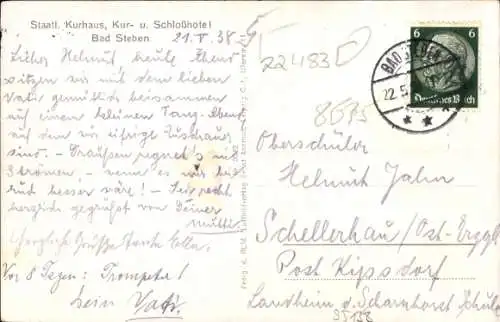 Staatl. Kurhaus, Kur- u. Schloßhotel
Bad Steben 21. V. 38.
Lieber Helmut, heute Abend
sitzen wir mit dem lieben
Vati gemütlich beisammen
auf einem kleinen Tanz-Abend,
auf dem wir eifrige Zuschauer
sind. - Draußen regnet's in
Strömen, - wenn es nur
besser wäre! - Sei recht
herzlich gegrüßt von Deiner
Mutti.
Herzliche Grüße Tante
Vor 8 Tagen: Trompeter!
Dein Vati.
22483
8575
6 6
Deutsches Reich
BAD STEBEN
22.5.
Oberschüler
Helmut Jahn
Schellerhau/Ost-Erzgb
Post Kipsdorf
Landheim d. Scharnhorst Schule
35138